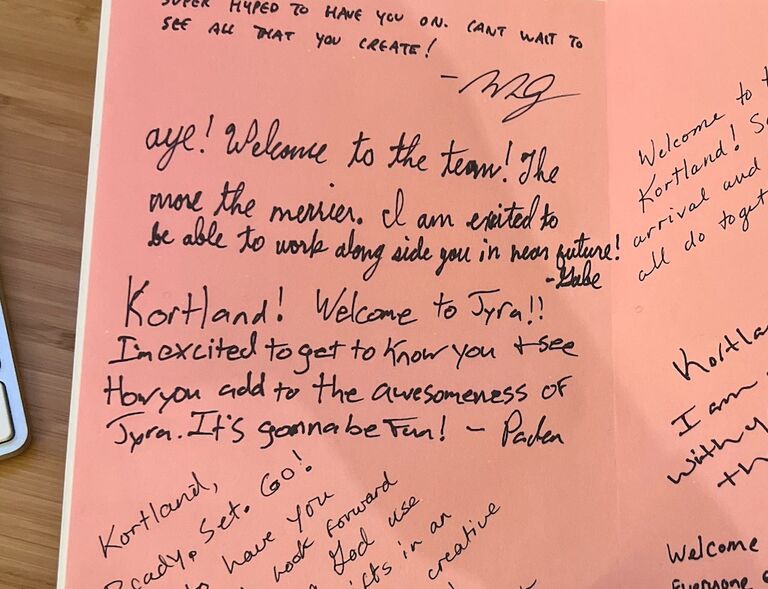 SUPER HYPED TO HAVE YOU ON. CANT WAIT TO
SEE ALL THAT YOU CREATE!
aye! Welcome to the team! The
more the merrier. I am exited to
be able to work along side you in near future!
-Gabe
Kortland! Welcome to Tyra!!
I'm excited to get to know you + see
How you add to the awesomeness of
Tyra. It's gonna be Fun! - Paden
Kortland,
Ready. Set. GO!
to have you
look forward
God use
gifts in an
creative
Welcome to
Kortland!
arrival and
all do
I am
with
Welcome
Everyone